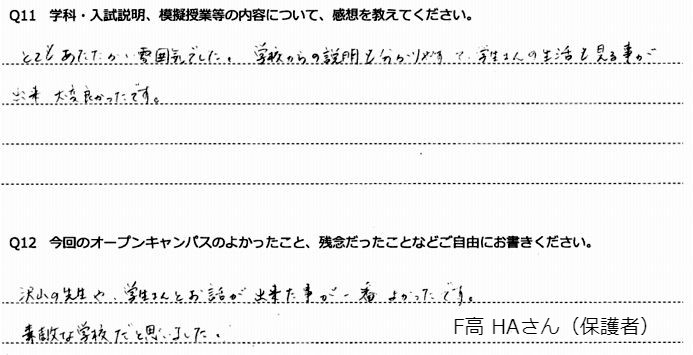 Q11 学科・入試説明、模擬授業等の内容について、感想を教えてください。
とてもあたたかい雰囲気でした。学校からの説明も分かりやすくて、学生さんの生活も見る事が
出来 大変良かったです。
Q12 今回のオープンキャンパスのよかったこと、残念だったことなどご自由にお書きください。
沢山の先生や、学生さんとお話が出来た事が一番よかったです。
素敵な学校だと思いました。
F高 HAさん（保護者）